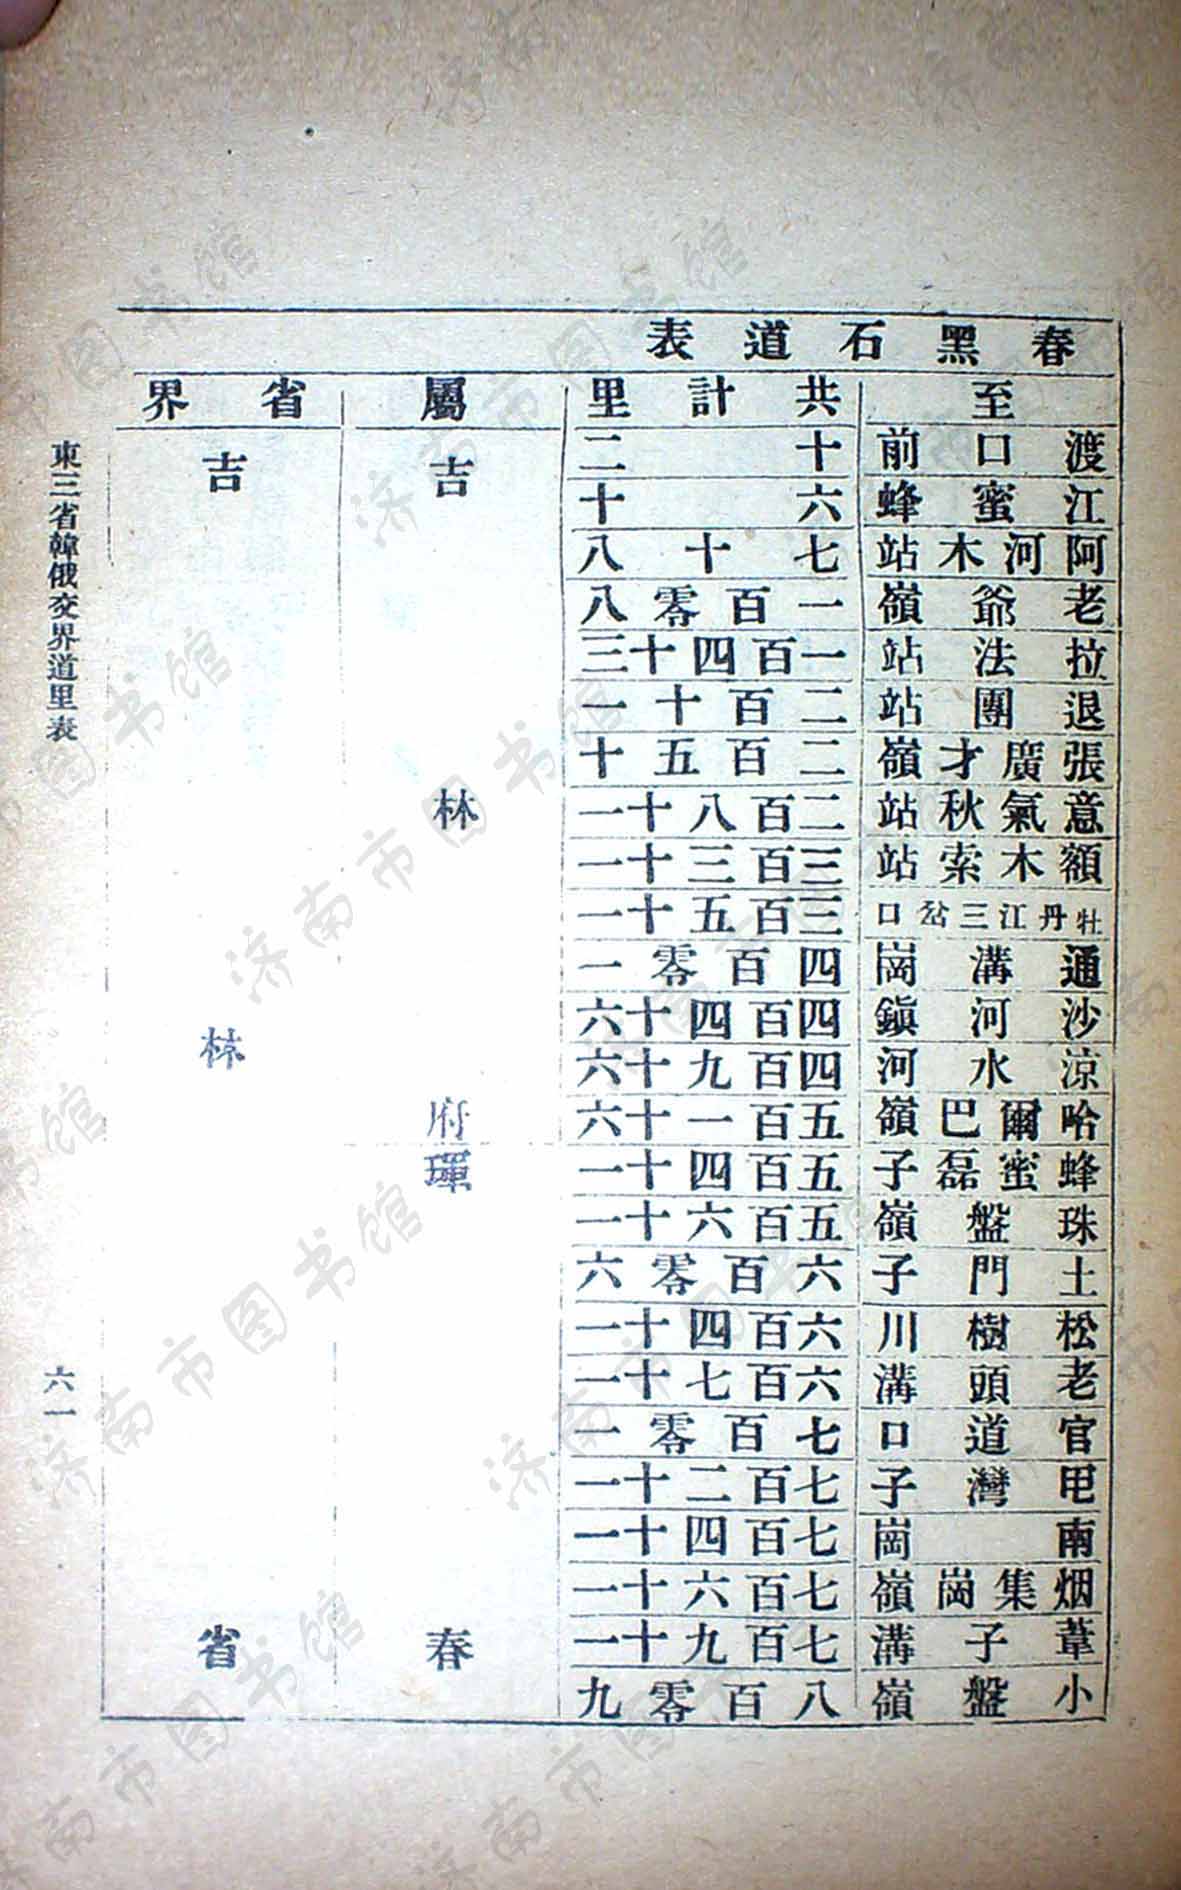 春黑石道表
至 共計里 屬 省界
渡口前 十二
江蜜蜂 六十
阿河木站 七十八
老爺嶺 一百零八
拉法站 一百四十三
退團站 二百十一
張廣才嶺 二百五十
意氣秋站 二百八十一
額木索站 三百三十一
牡丹江三岔口 三百五十一
通溝崗 四百零一
沙河鎮 四百四十六
涼水河 四百九十六
哈爾巴嶺 五百一十六
蜂蜜磊子 五百四十一
珠盤嶺 五百六十一
土門子 六百零六
松樹川 六百四十一
老頭溝 六百七十一
官道口 七百零一
甩灣子 七百二十一
南崗 七百四十一
烟集崗嶺 七百六十一
葦子溝 七百九十一
小盤嶺 八百零九
吉林府
琿春
吉林省
東三省韓俄交界道里表
六一
济南市图书馆